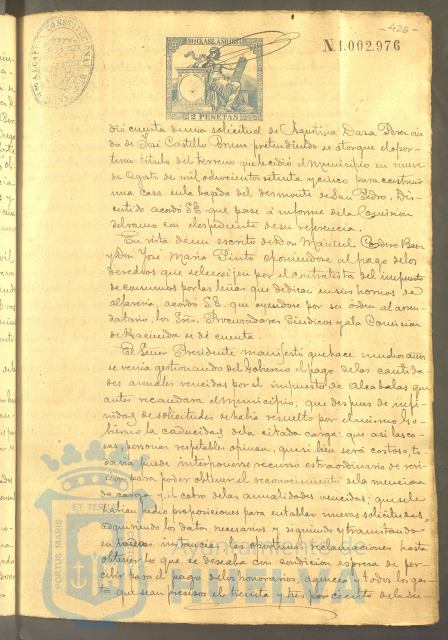 -425-
N.1.002.976
2 PESETAS
dió cuenta de una solicitud de Agustina Daza Perez viu
da de José Castillo Brun pretendiendo se otorgue el opor
tuno titulo del terreno que le cedió el Municipio en nueve
de Agosto de mil ochocientos setenta y cinco para construir
una casa en la bajada del desmonte de San Pedro, Dis-
cutido acordó S.E. que pase á informe de la Comision
del ramo con el espediente de su referencia.
En vista de un escrito de Don Manuel Cordero Baez
y Don José Maria Pinto oponiendose al pago de los
derechos que se le exijen por el contratista del impuesto
de consumos por las leñas que dedican en sus hornos de
alfareria, acordó S.E. que oyendose por su órden al arren
datario, los Sres. Procuradores Sindicos y á la Comision
de Hacienda se dé cuenta.
El Señor Presidente manifestó que hace muchos años
se venia gestionando del Gobierno el pago de las cantida
des anuales vencidas por el impuesto de Alcabalas que
antes recaudara el Municipio; que despues de infi-
nidad de solicitudes se habia resuelto por el mismo Go-
bierno la caducidad de la citada carga: que asi las co-
sas, personas respetables opinan, que si bien será costoso, to
davia puede interponerse recurso extraordinario de revi-
sion para poder obtener el reconocimiento de la menciona
da carga y el cobro de las anualidades vencidas; que se le
habian hecho proposiciones para entablar nuevas solicitudes,
adquiriendo los datos necesarios y siguiendo y tramitando
en todas instancias las oportunas reclamaciones hasta
obtener lo que se deseaba con condicion espresa de per-
cibir para el pago de los honorarios, agencia y todos los gas
tos que sean precisos el treinta y tres por ciento de la su-
PORTUS MARIS
ET TER
Ayuntamiento de
HUELVA